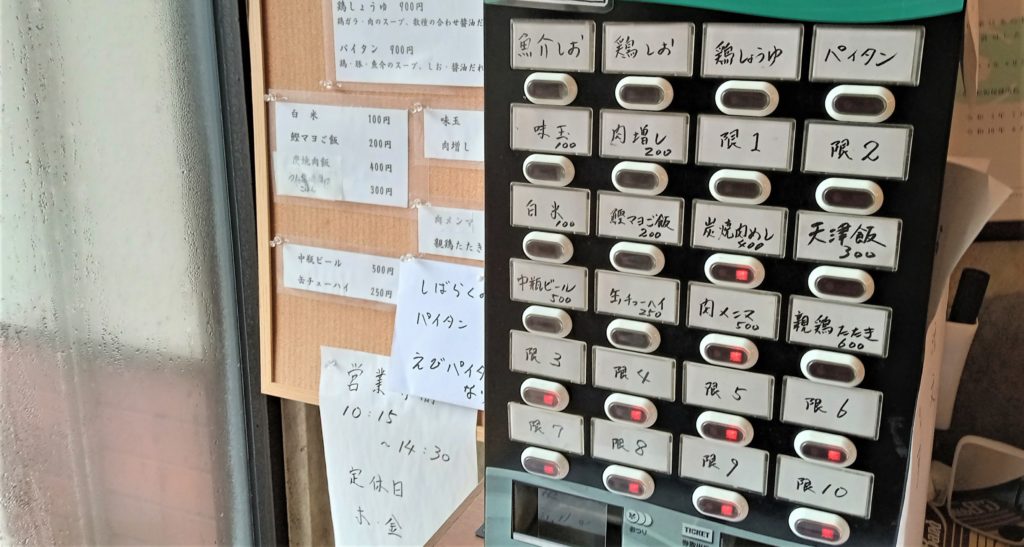 鶏しょうゆ 900円
鶏ガラ・肉のスープ、数種の合わせ醤油だ
パイタン 900円
鶏・豚・魚介のスープ、しお・醤油だれ
白米 100円
鰹マヨご飯 200円
炭焼肉飯 400円
300円
味玉
肉増し
肉メンマ
親鶏たたき
中瓶ビール 500円
缶チューハイ 250円
しばらく
パイタン
えびパイタ
なり
営業
10:15
~14:30
定休日
木 金
魚介しお
鶏しお
鶏しょうゆ
パイタン
味玉
100
肉増し
200
限1
限2
白米
100
鰹マヨご飯
200
炭焼肉めし
400
天津飯
300
中瓶ビール
500
缶チューハイ
250
肉メンマ
500
親鶏たたき
600
限3
限4
限5
限6
限7
限8
限9
限10
おつり
TICKET